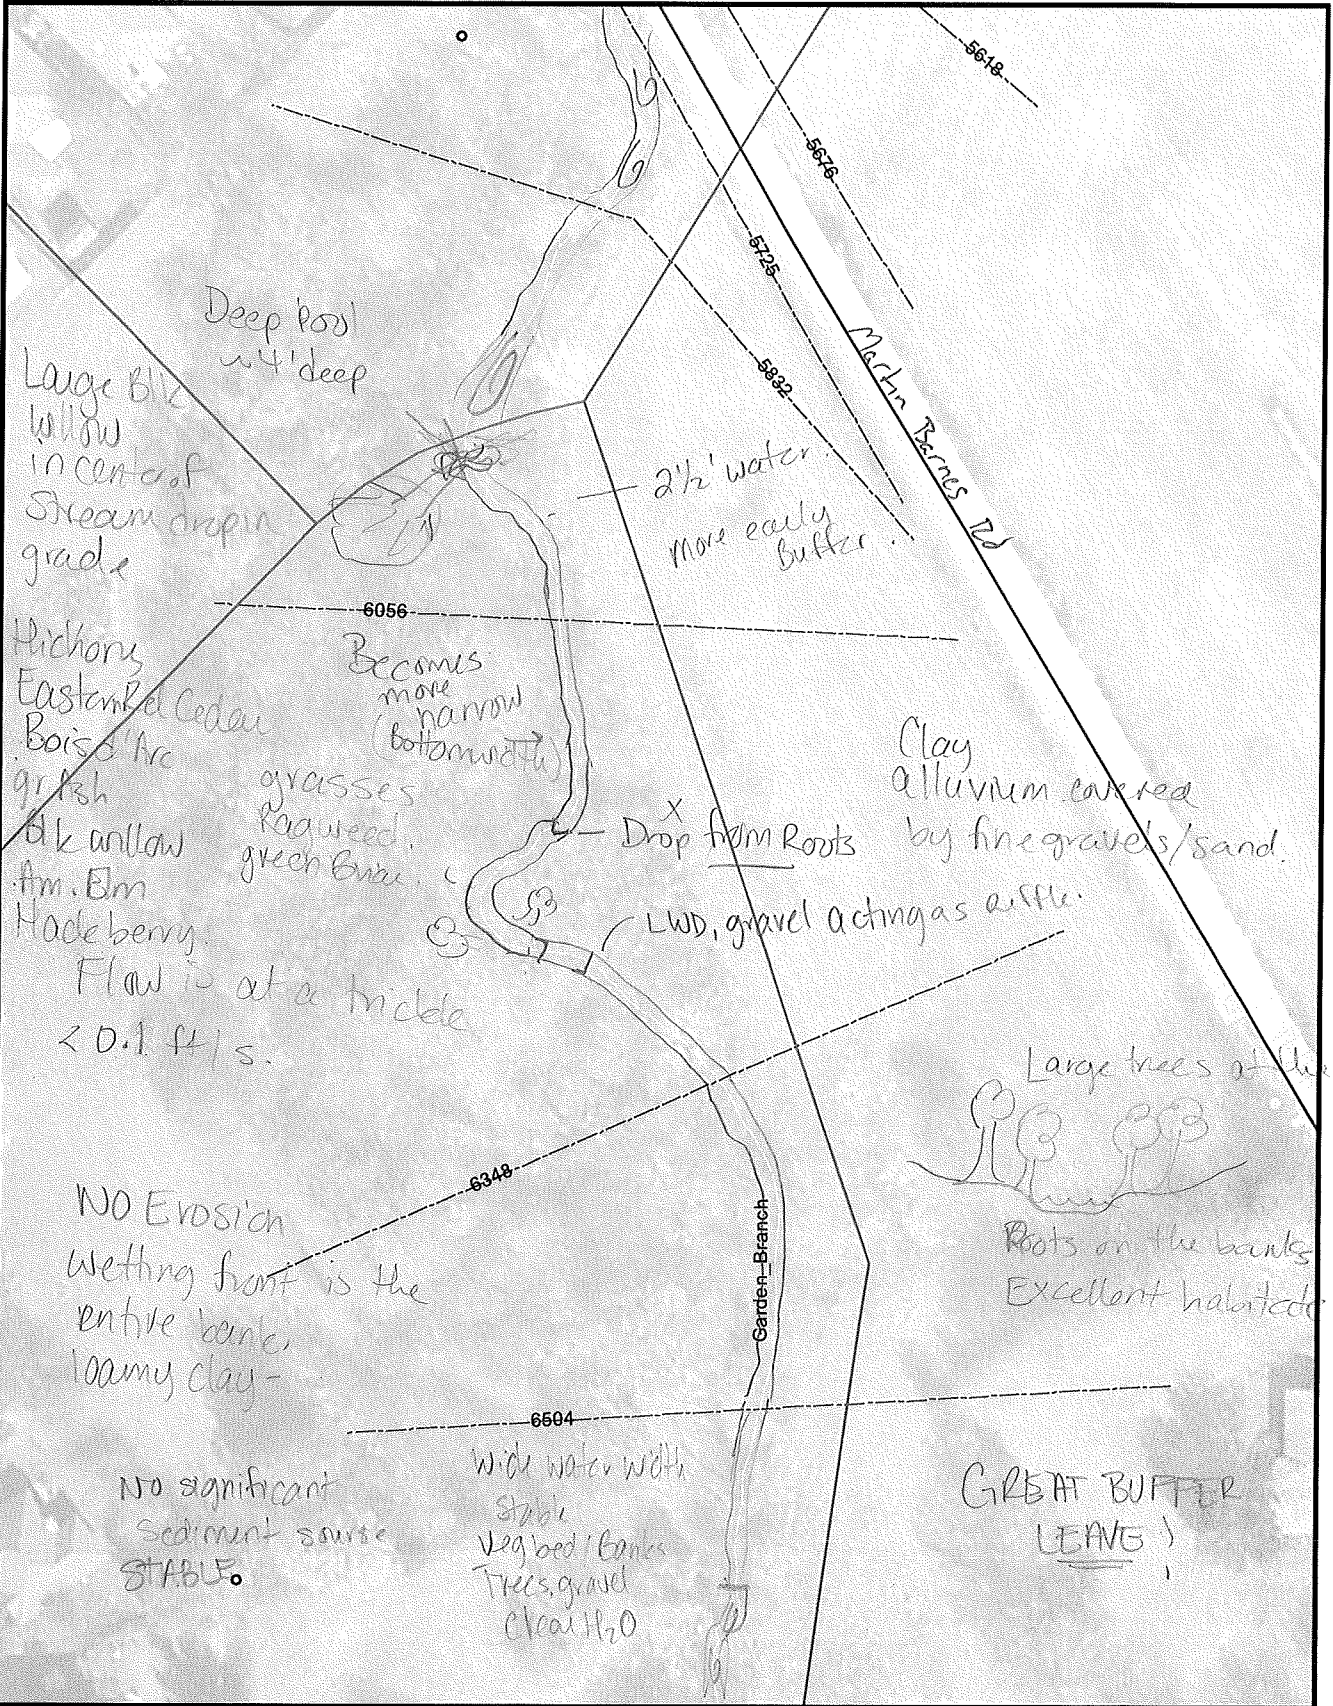 5618
5676
5725
5832
Martin Barnes Rd
Deep Pool
~4' deep
Large Blk
Willow
in center of
Stream drop in
grade
2½' water
more early
Buffer
6056
Hickory
Eastern Red Cedar
Bois d'Arc
gr Ash
Blk willow
Am. Elm
Hackberry
Becomes
more
narrow
(bottom width)
grasses
Ragweed,
green Briar.
X
Drop from Roots
Clay
alluvium covered
by fine gravels/sand.
LWD, gravel acting as riffle.
Flow is at a trickle
< 0.1 ft/s.
Large trees at the
Roots on the banks
Excellent habitat
6348
Garden_Branch
NO Erosion
Wetting front is the
entire bank,
loamy clay-
6504
No significant
Sediment sourse
STABLE
Wide water width
stable
Veg bed/Banks
Trees, gravel
clear H₂O
GREAT BUFFER
LEAVE!